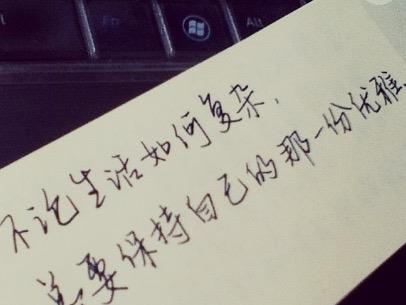 Fn
Alt
不论生活如何复杂，
总要保持自己的那一份优雅.